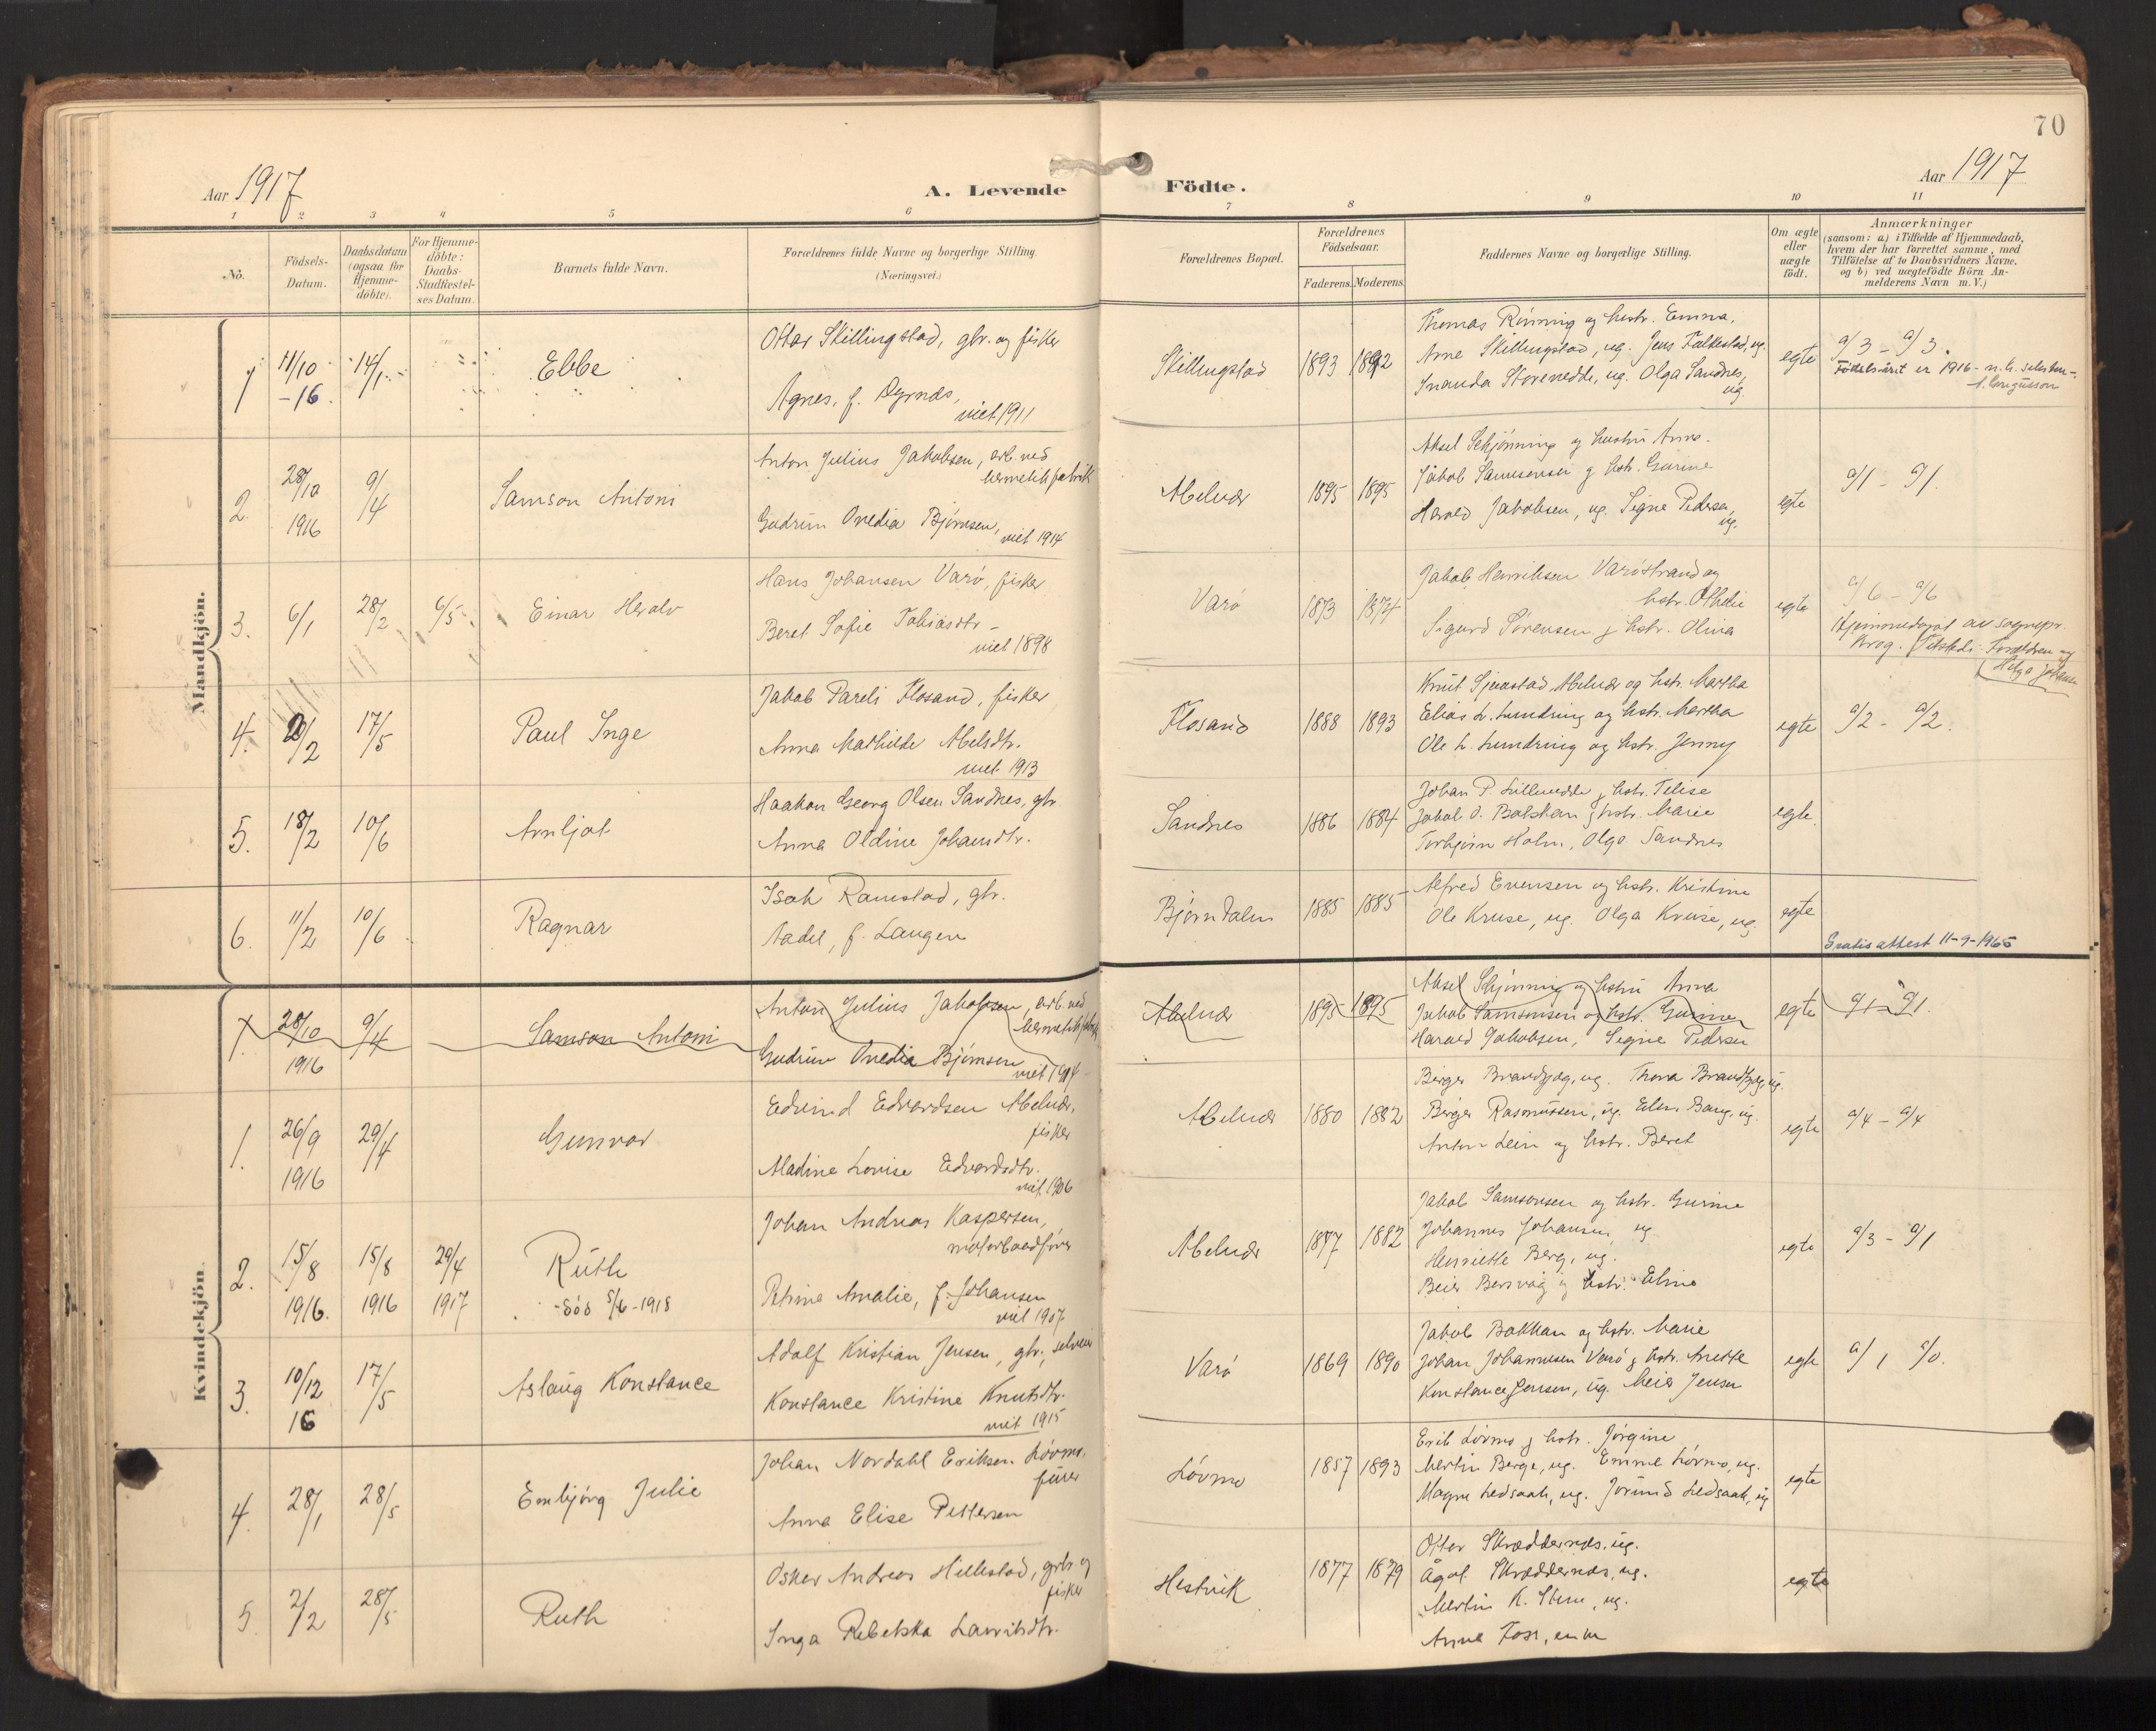 70
Aar 1917
A. Levende
Födte.
Aar 1917
1 2 3 4 5 6 7 8 9 10 11
No.
Födsels-
Datum.
Daabsdatum
(ogsaa for
Hjemme-
döbte).
For Hjemme-
döbte:
Daabs-
Stadfæstel-
ses Datum.
Barnets fulde Navn.
Forældrenes fulde Navne og borgerlige Stilling.
(Næringsvei.)
Forældrenes Bopæl.
Forældrenes
Födselsaar.
Faderens. Moderens.
Faddernes Navne og borgerlige Stilling.
Om ægte
eller
uægte
födt.
Anmærkninger
(saasom: a) i Tilfælde af Hjemmedaab,
hvem der har forrettet samme, med
Tilföielse af to Daabsvidners Navne,
og b) ved uægtefödte Börn An-
melderens Navn m. V.)
Mandkjön.
1 11/10 -16 14/1 Ebbe
Ottar Skillingstad, gbr. og fisker
Agnes, f. Dyrnes,
viet 1911
Skillingstad 1893 1892
Thomas Rönning og hustr. Emma,
Arne Skillingstad, ug. Jens Falkestad, ug.
Inanda Storenedde, ug. Olga Sandnes,
ug.
egte a/3 - a/3.
Födselsåret er 1916 -
2. 28/10 1916 9/4 Samson Antoni
Anton Julius Jakobsen, arb. ved
hermetikfabrik
Gudrun Ovedia Björnsen,
viet 1914
Abelvær 1895 1895
Aksel Schjönning og hustru Anna.
Jakob Samsonsen g hstr. Gurine
Harald Jakobsen, ug. Signe Pedersen,
ug.
egte a/1 - a/1.
3. 6/1 28/2 6/5 Einar Heralv
Hans Johansen Varö, fisker
Beret Sofie Tobiasdtr -
viet 1898
Varö 1873 1874
Jakob Henriksen Varöstrand og
hstr. Othelie
Sigurd Sörensen g hstr. Olina
egte a/6 - a/6
Hjemmedøpt av sognepr.
Krog. Tilstede: Forældren og
Helga Johansen
4. 2/2 17/5 Paul Inge
Jakob Pareli Flosand, fisker
Anna Mathilde Abelsdtr.
viet 1913
Flosand 1888 1893
Knut Sjenstad Abelvær og hstr. Martha
Elias L. Lundring og hstr. Martha
Ole L. Lundring og hstr. Jenny
egte a/2 - a/2.
5. 18/2 10/6 Arnljot
Haakon Georg Olsen Sandnes, gbr.
Anna Oldine Johansdtr.
Sandnes 1886 1884
Johan P. Lillenedde g hstr. Telise
Jakob O. Bakkan g hstr. Marie
Torbjörn Holm, Olga Sandnes
egte.
6. 11/2 10/6 Ragnar
Isak Ramstad, gbr.
Aadel, f. Laugen
Bjørndalen 1885 1885
Alfred Evensen og hstr. Kristine
Ole Kruse, ug. Olga Kruse, ug.
egte
Gratis attest 11-9-1965
Kvindekjön.
1. 28/10 1916 9/4 Samson Antoni
Anton Julius Jakobsen, arb. ved
hermetikfabrik
Gudrun Ovedia Bjørnsen
viet 1914
Abelvær 1895 1895
Aksel Schjönning og hustru Anna
Jakob Samsonsen og hstr. Gurine
Harald Jakobsen, Signe Pedersen
egte a/1 - a/1.
1. 26/9 1916 29/4 Gunvor
Edvind Edvardsen Abelvær,
fisker
Aladine Lovise Edvardsdtr.
viet 1906
Abelvær 1880 1882
Birger Brandtzæg, ug. Thora Brandtzæg, ug.
Birger Rasmussen, ug. Elen Bang, ug.
Anton Lein og hstr. Beret
egte a/4 - a/4
2. 15/8 1916. 15/8 1916 29/4 1917 Ruth
- död 5/6 - 1918
Johan Andreas Kaspersen,
motorbaadförer
Petrine Amalie, f. Johansen
viet 1907.
Abelvær 1877 1882
Jakob Samsonsen og hstr. Gurine
Johannes Johansen, ug
Henriette Berg, ug.
Beier Bersvåg g hstr. Eline
egte a/3 - a/1
3. 10/12 16 17/5 Aslaug Konstance
Adolf Kristian Jensen, gbr., selveier
Konstance Kristine Knutsdtr.
viet 1915
Varö 1869 1890
Jakob Bakkan og hstr. Marie
Johan Johannesen Varö g hstr. Anette
Konstance Jensen, ug. Meier Jensen
egte a/1 a/0.
4. 28/1 28/5 Embjörg Julie
Johan Nordahl Eriksen Lövmo,
fürer
Anna Elise Pettersen
Lövmo 1857 1893
Erik Lövmo g hstr. Jörgine
Martin Berge, ug. Emma Lövmo, ug.
Magne Ledsaak, ug. Jorund Ledsaak, ug
egte
5. 2/2 28/5 Ruth
Oskar Andreas Hillestad, gbr. og
fisker
Inga Rebekka Lauritsdtr.
Hestvik 1877 1879
Otter Skreddernes, ug.
Ågot Skreddernes, ug.
Martin K. Stene, ug.
Anna Foss, enke
egte